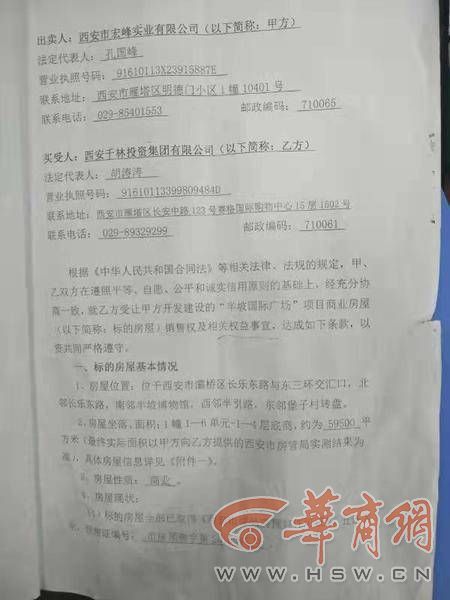 出卖人：西安市宏峰实业有限公司（以下简称：甲方）
法定代表人：孔国峰
营业执照号码：91610113X23915887E
联系地址：西安市雁塔区明德门小区1幢10401号
联系电话：029-85401553 邮政编码：710065
买受人：西安千林投资集团有限公司（以下简称：乙方）
法定代表人：胡涛涛
营业执照号码：91610113399809484D
联系地址：西安市雁塔区长安中路123号赛格国际购物中心15层1502号
联系电话：029-89329299 邮政编码：710061
根据《中华人民共和国合同法》等相关法律、法规的规定，甲、
乙双方在遵照平等、自愿、公平和诚实信用原则的基础上，经充分协
商一致，就乙方受让甲方开发建设的“半坡国际广场”项目商业房屋
（以下简称：标的房屋）销售权及相关权益事宜，达成如下条款，以
资共同严格遵守。
一、标的房屋基本情况
1、房屋位置：位于西安市灞桥区长乐东路与东三环交汇口，北
邻长乐东路，南邻半坡博物馆，西邻半引路，东邻堡子村转盘。
2、房屋坐落、面积：1幢1—6单元-1—4层底商，约为59500平
方米（最终实际面积以甲方向乙方提供的西安市房管局实测结果为
准），具体房屋信息详见《附件一》。
3、房屋性质：商业。
4、房屋现状：
标的房屋全部已取得
证编号：市房预售字第
华商网
WWW.HSW.CN